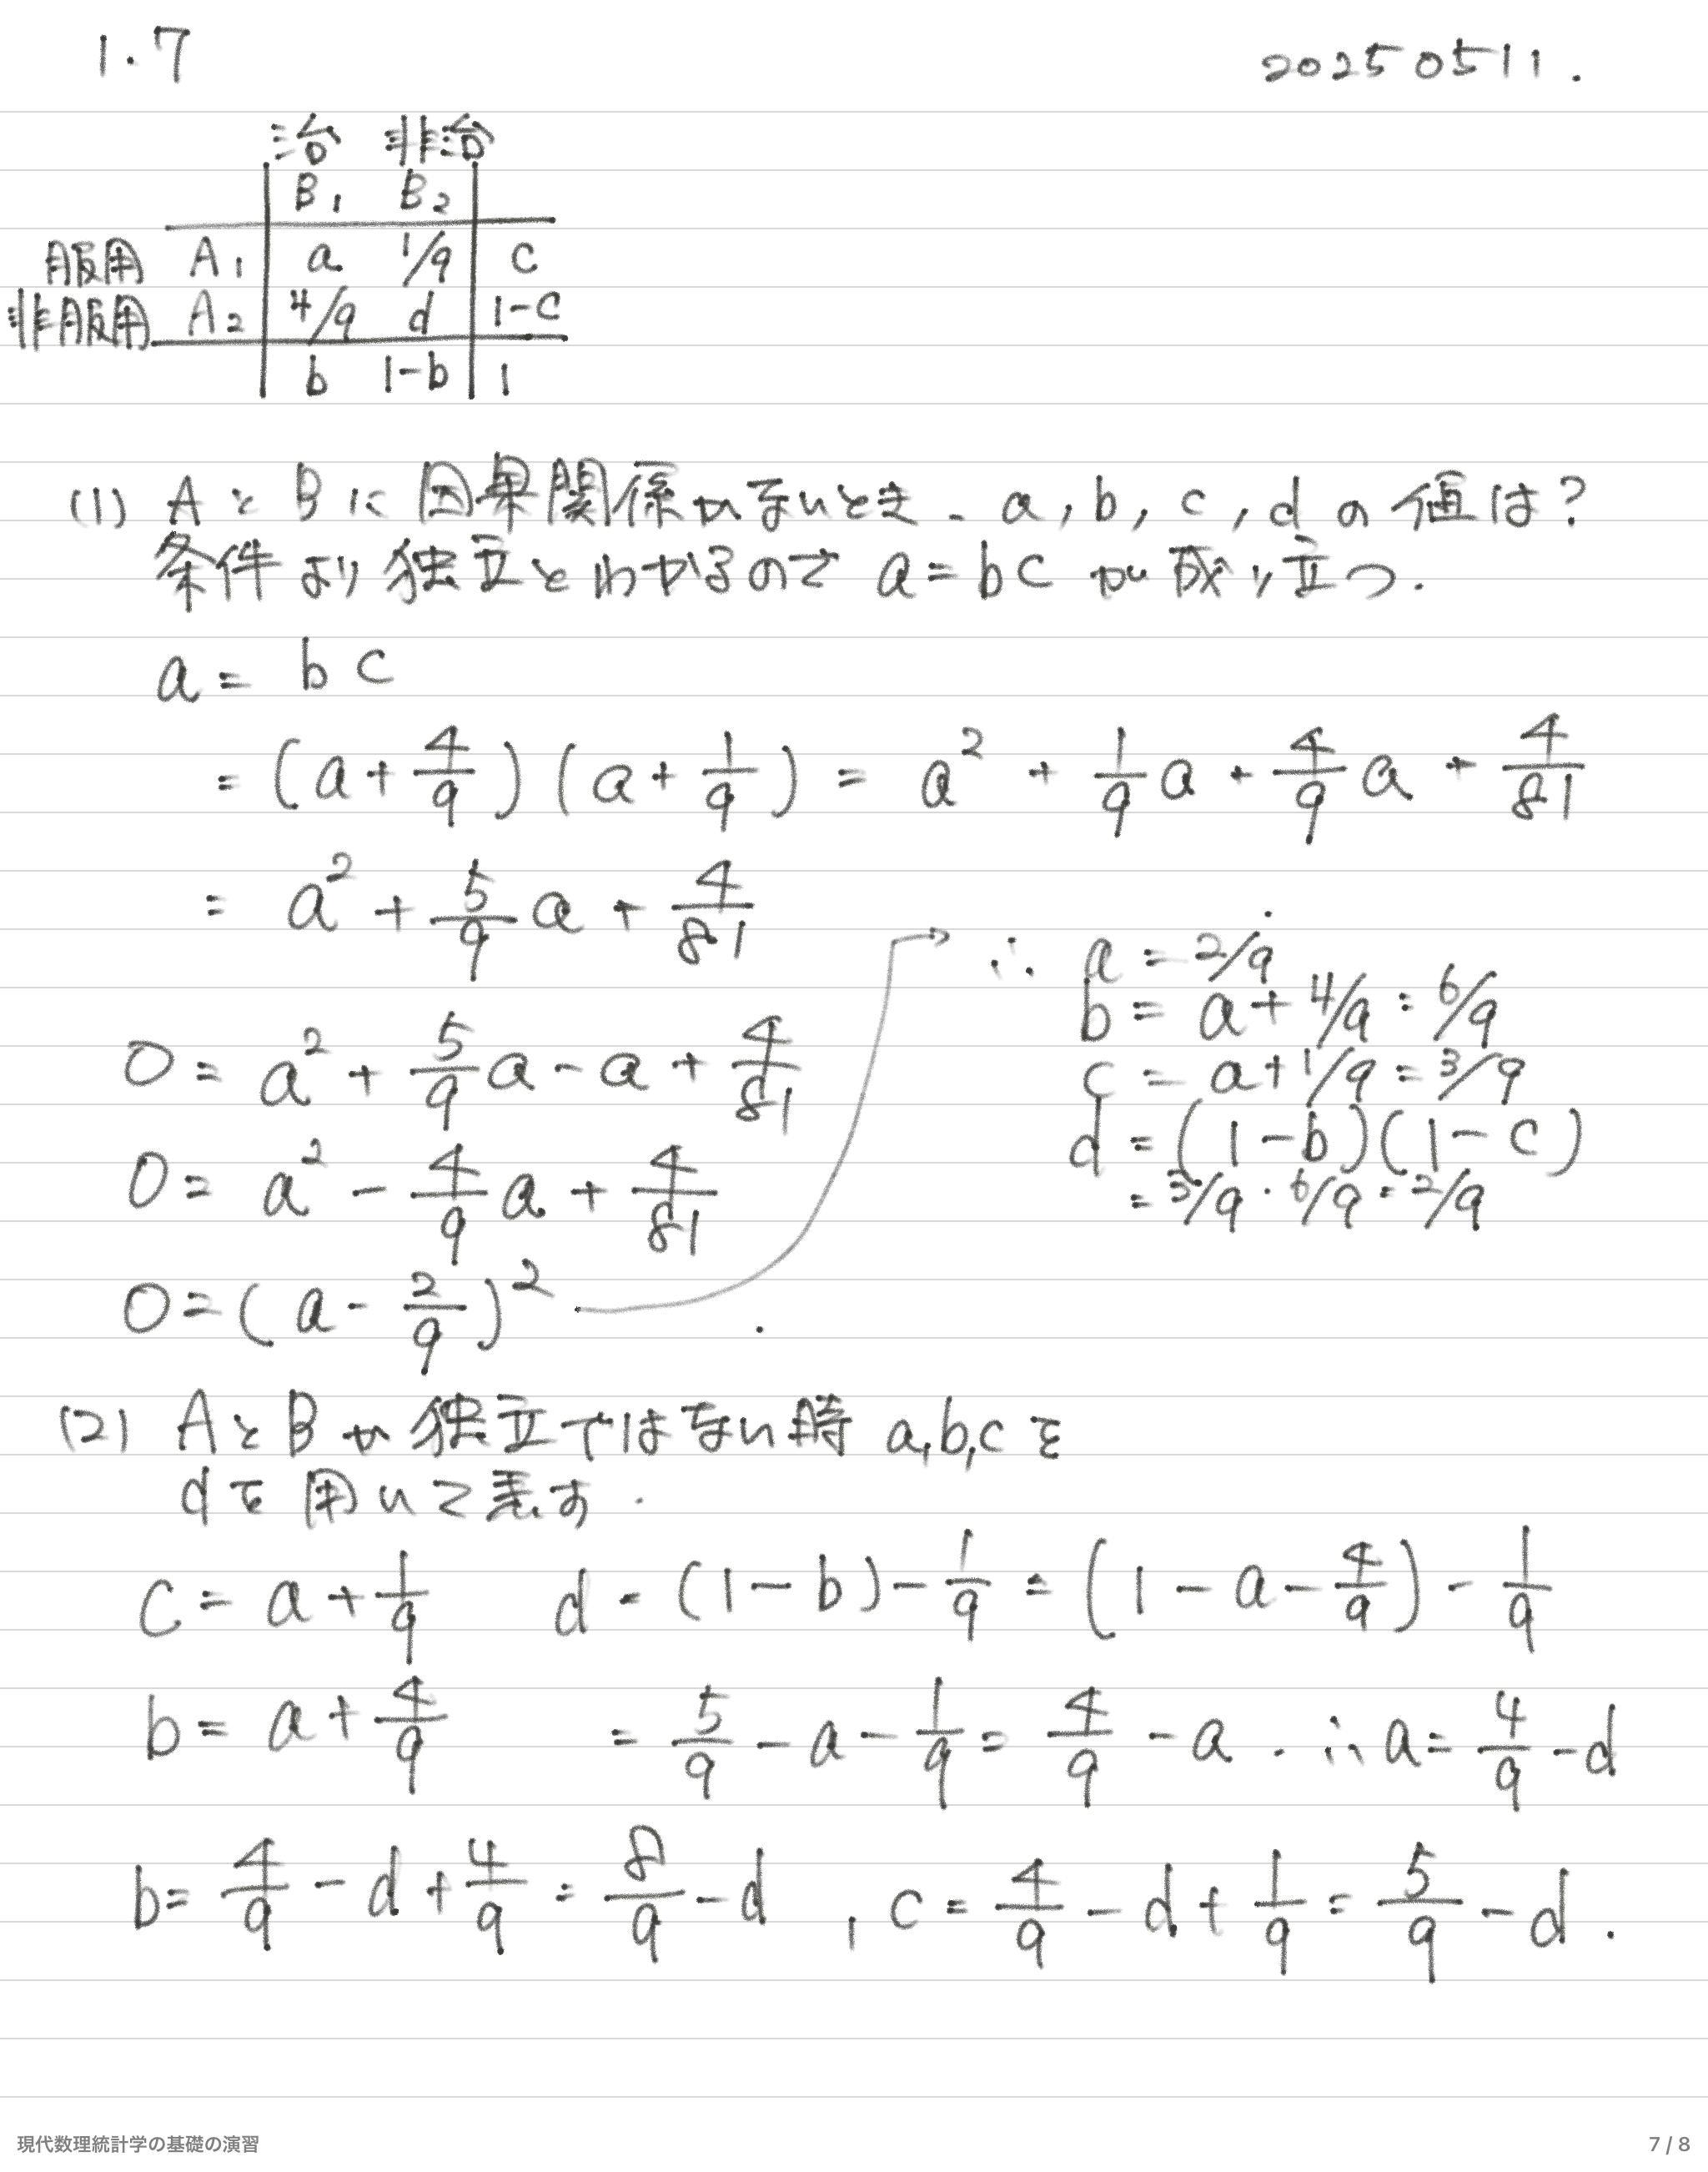 1.7 20250511.
治 非治
B1 B2
服用 A1 a 1/9 c
非服用 A2 4/9 d 1-c
b 1-b 1
(1) AとBに因果関係がないとき、a, b, c, dの値は?
条件より独立とわかるので a=bc が成り立つ.
a = bc
= (a + 4/9)(a + 1/9) = a² + 1/9 a + 4/9 a + 4/81
= a² + 5/9 a + 4/81
0 = a² + 5/9 a - a + 4/81
0 = a² - 4/9 a + 4/81
0 = (a - 2/9)²
∴ a = 2/9
b = a + 4/9 = 6/9
c = a + 1/9 = 3/9
d = (1-b)(1-c)
= 3/9・6/9 = 2/9
(2) AとBが独立ではない時 a,b,cを
dを用いて表す.
c = a + 1/9 d = (1-b) - 1/9 = (1 - a - 4/9) - 1/9
b = a + 4/9 = 5/9 - a - 1/9 = 4/9 - a . ∴ a = 4/9 - d
b = 4/9 - d + 4/9 = 8/9 - d , c = 4/9 - d + 1/9 = 5/9 - d .
現代数理統計学の基礎の演習 7 / 8